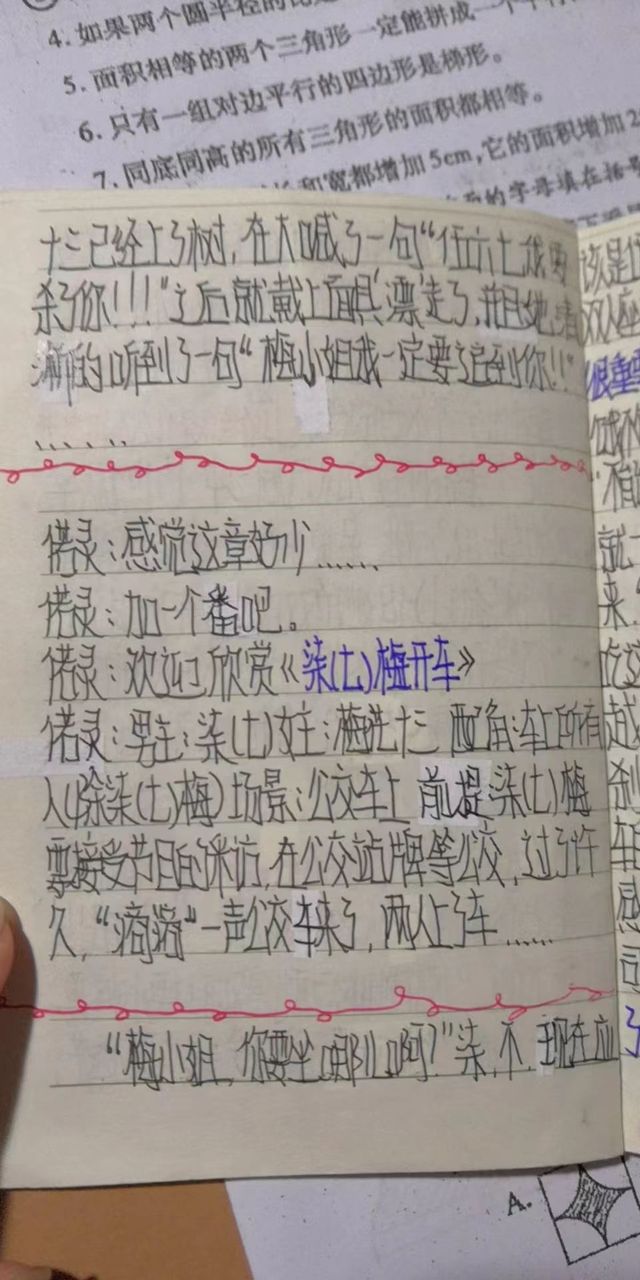 4.如果两个圆半径的
5.面积相等的两个三角形一定能拼成一个
6.只有一组对边平行的四边形是梯形。
7.同底同高的所有三角形的面积都相等。
和宽都增加5cm,它的面积增加2
的字母填在括号
十三已经上了树,在大喊了一句“伍六七我要
杀了你!!!”之后就戴上面具‘漂’走了,并且她清
渐的听到了一句“梅小姐我一定要追到你!!”
......
偌灵:感觉这章好少......
偌灵:加一个番吧。
偌灵:欢迎欣赏《柒(七)梅开车》
偌灵:男主:柒(七)女主:梅进十三 配角:车上所有
人(除柒(七)梅)场景:公交车上 前提柒(七)梅
要接受节目的采访,在公交站牌等公交,过了许
久,“滴滴”一声公交车来了,两人上了车......
“梅小姐,你要坐哪儿啊?”柒,不,现在应
该是伍
双人座
很重要
就一
来,“
吃这
越
刹
车
感
司
了
A.